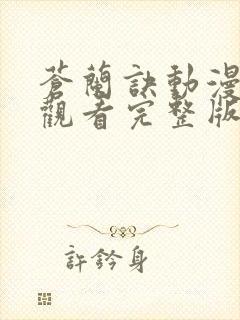 蒼蘭訣動漫
觀看完整版
許鈐身